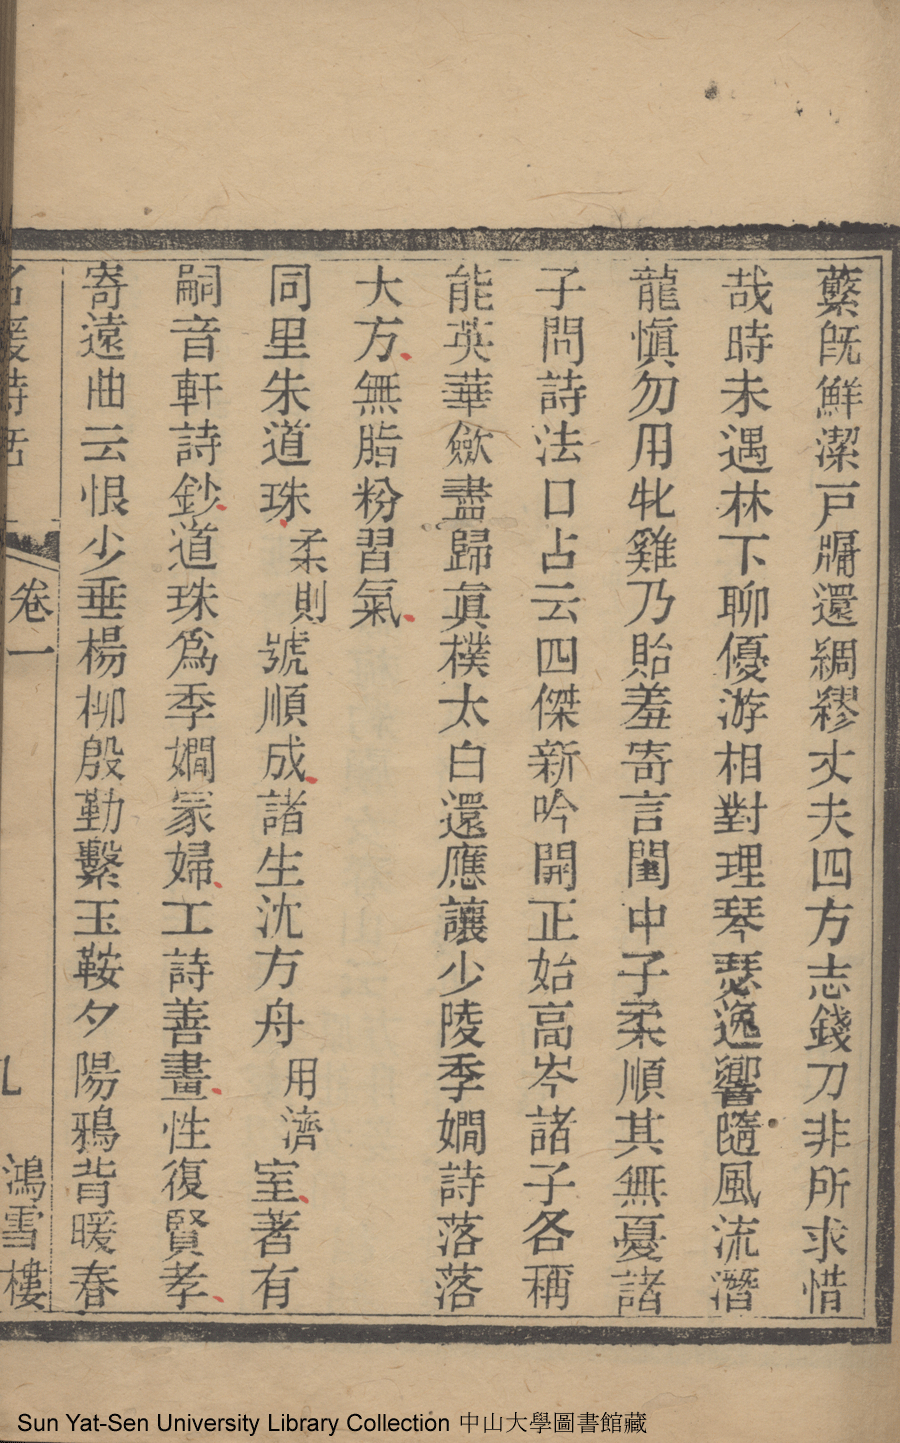 蘩既鮮潔戸牖還綢繆丈夫四方志錢刀非所求惜
哉時未遇林下聊優游相對理琴瑟逸響隨風流潛
龍愼勿用牝雞乃貽羞寄言閨中子柔順其無憂諸
子問詩法口占云四傑新吟開正始高岑諸子各稱
能英華歛盡歸眞樸太白還應讓少陵季嫺詩落落
大方無脂粉習氣
同里朱道珠柔則號順成諸生沈方舟用濟室著有
嗣音軒詩鈔道珠爲季嫺冢婦工詩善畫性復賢孝
寄遠曲云恨少垂楊柳殷勤繫玉鞍夕陽鴉背暖春
名媛詩話 卷一 九 鴻雪樓
Sun Yat-Sen University Library Collection 中山大學圖書館藏